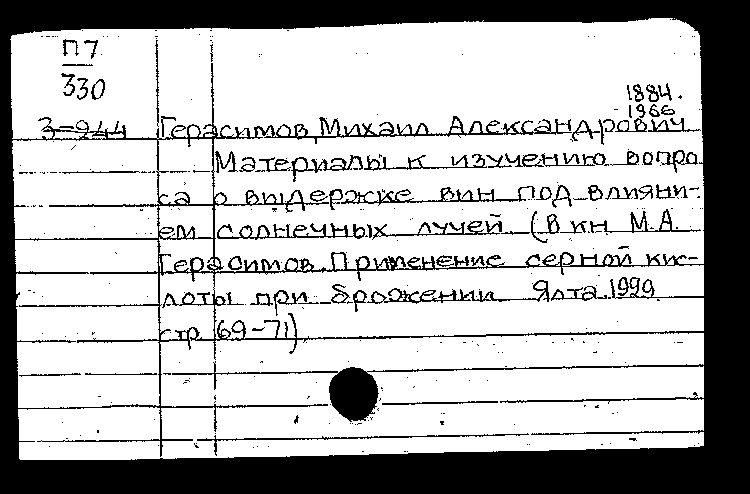 П7
330
1884.
1966
3-944 Герасимов, Михаил Александрович
Материалы к изучению вопро
са о выдержке вин под влияни-
ем солнечных лучей (В кн М.А.
Герасимов. Применение серной кис-
лоты при брожении Ялта, 1929
стр. 69-71)